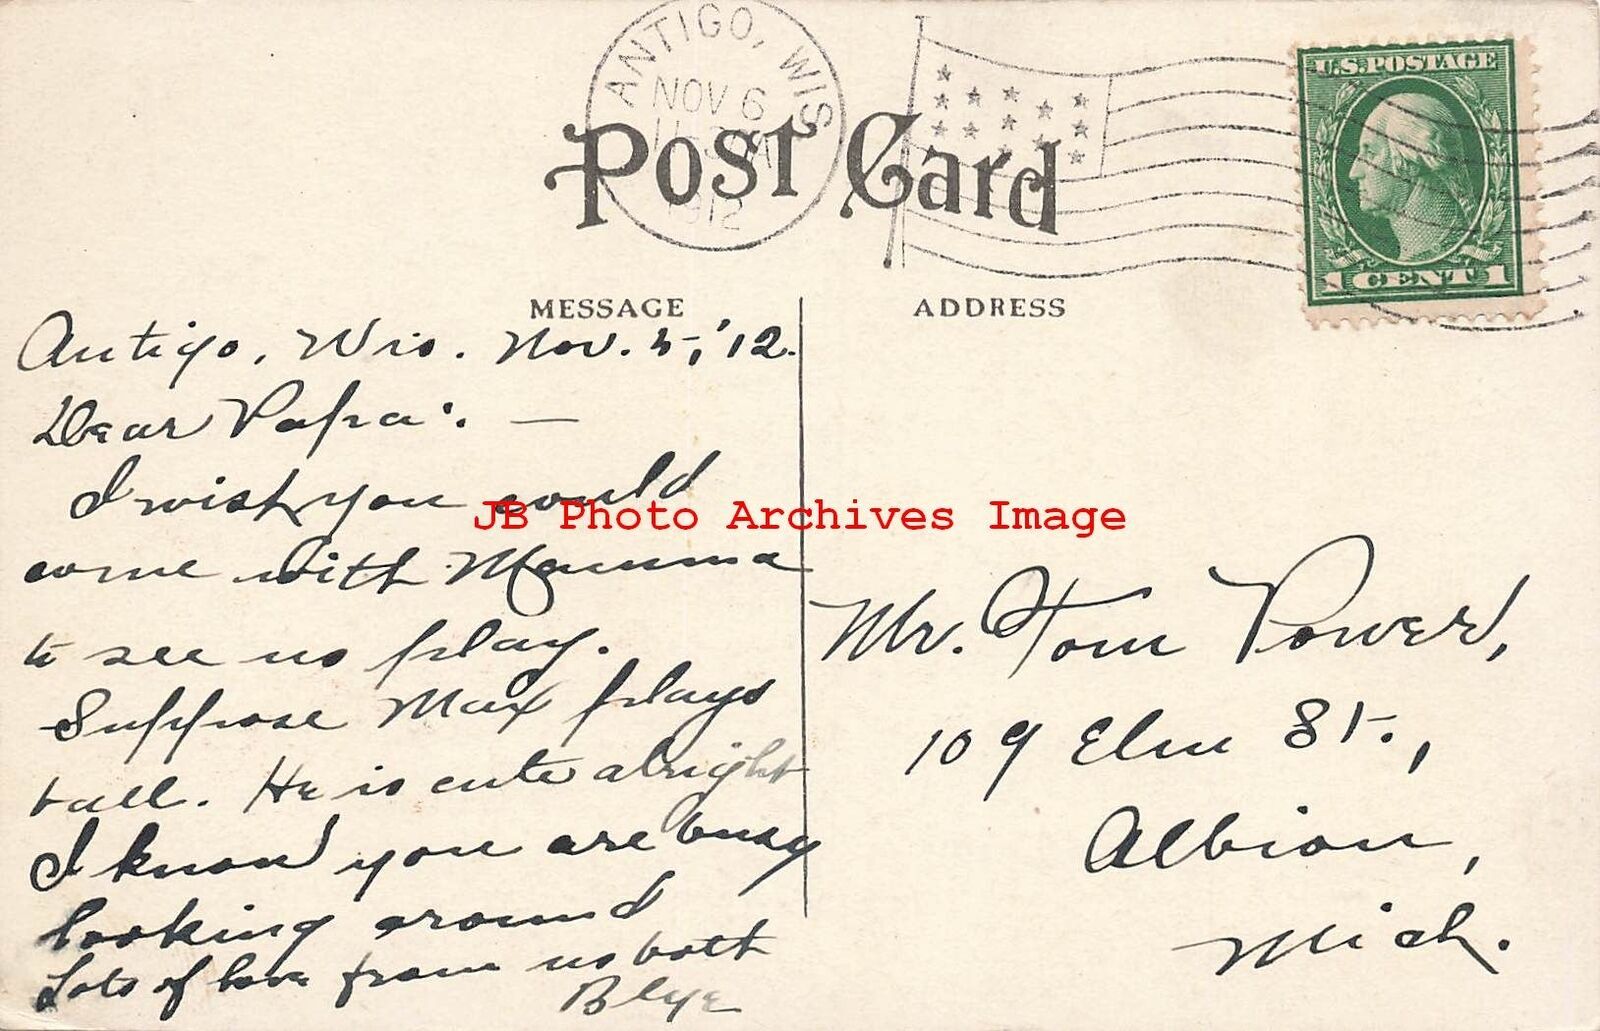 ANTIGO, WIS
NOV 6
1912
U.S. POSTAGE
1 CENT 1
Post Card
MESSAGE
ADDRESS
Antigo, Wis. Nov. 5, '12.
Dear Papa:. —
I wish you could
come with Mamma
to see us play.
Suppose Max plays
ball. He is cute alright
I know you are busy
looking around
Lots of love from us both
Blye
JB Photo Archives Image
Mr. Tom Power,
109 Elm St.,
Albion,
Mich.